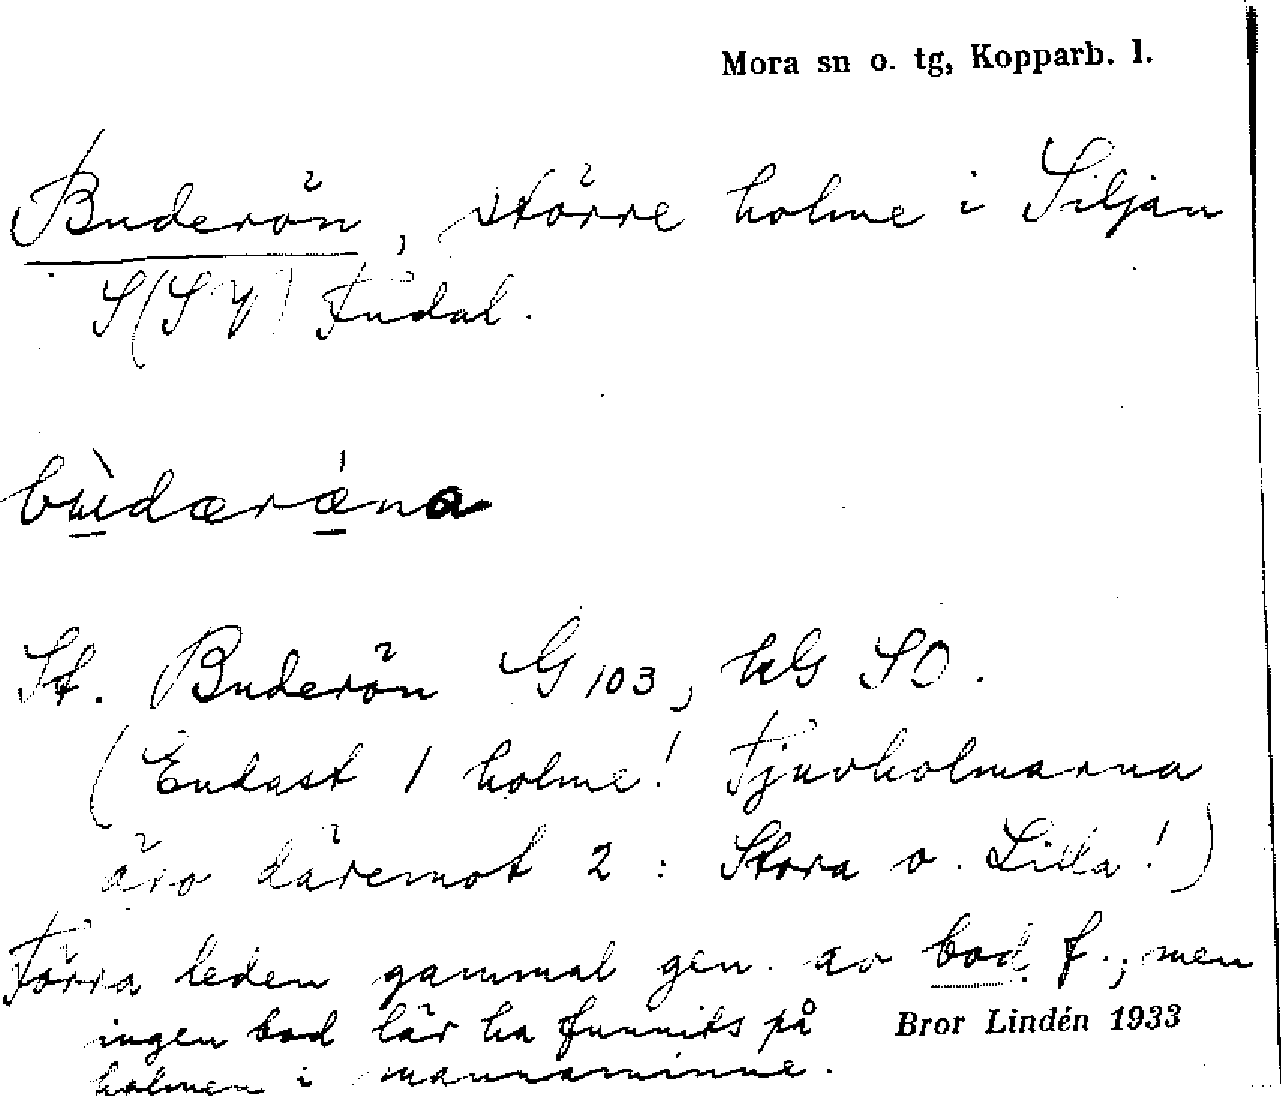 Mora sn o. tg, Kopparb. l.
Buderön, större holme i Siljan
S(SV) Fudal.
bùdærǽna
St. Buderön G 103, hG SO.
(Endast 1 holme! Tjuvholmarna
äro däremot 2: Stora o. Lilla!)
Förra leden gammal gen. av bod f., men
ingen bod lär ha funnits på
holmen i mannaminne.
Bror Lindén 1933